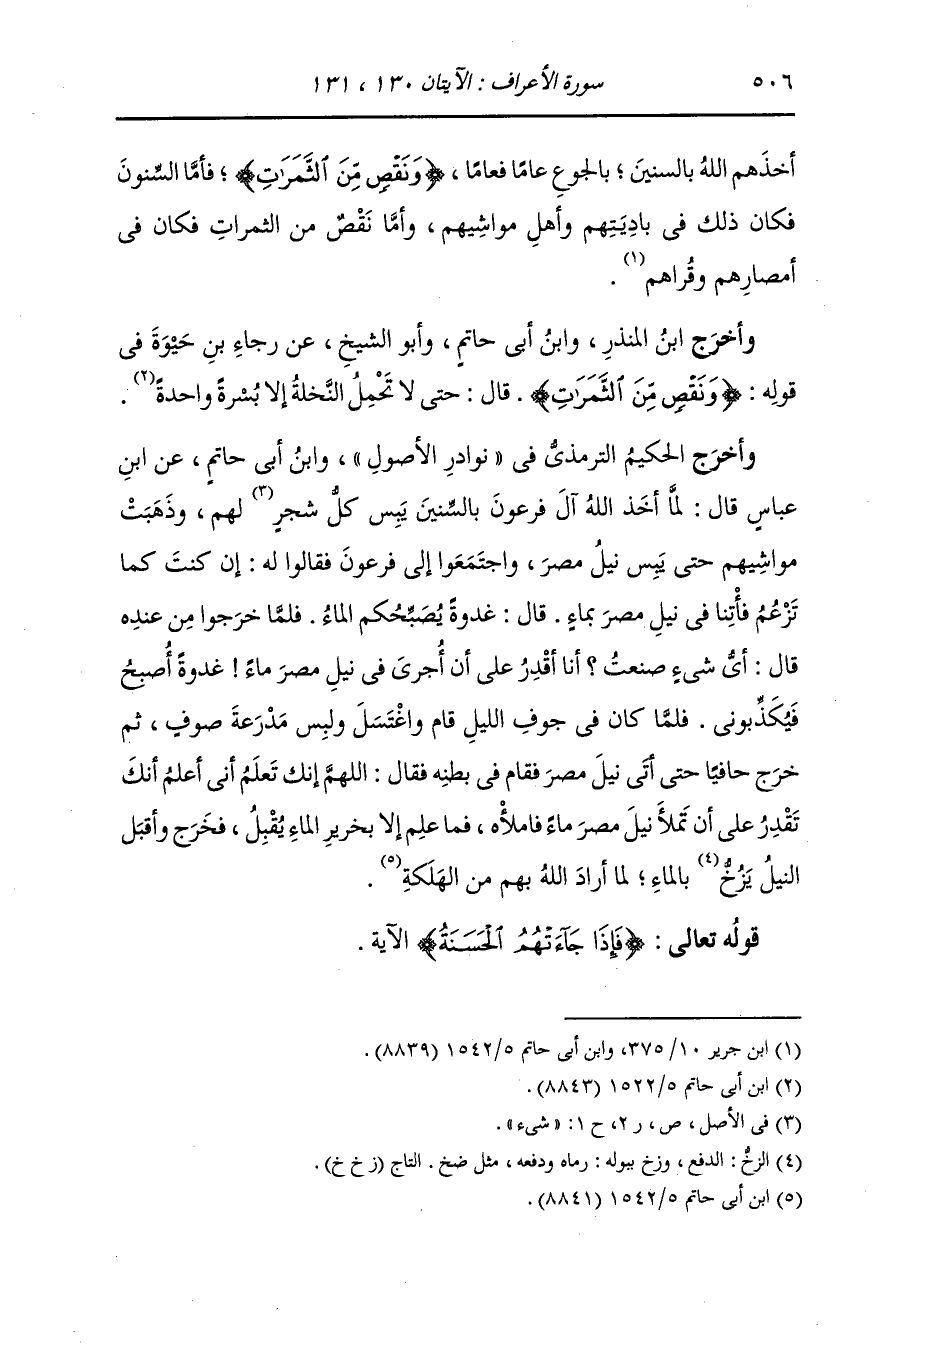 ٥٠٦ سورة الأعراف : الآيتان ١٣٠ ، ١٣١
أخذَهم اللهُ بالسنينَ ؛ بالجوعِ عامًا فعامًا ، ﴿وَنَقْصٍ مِّنَ ٱلثَّمَرَٰتِ﴾ ؛ فأمَّا السِّنونَ
فكان ذلك فى بادِيَتِهم وأهلِ مواشِيهم ، وأمَّا نَقْصٌ من الثمراتِ فكان فى
أمصارِهم وقُراهم(١) .
وأخرَج ابنُ المنذرِ ، وابنُ أبى حاتمٍ ، وأبو الشيخِ ، عن رجاءِ بنِ حَيْوَةَ فى
قولِه : ﴿وَنَقْصٍ مِّنَ ٱلثَّمَرَٰتِ﴾ . قال : حتى لا تَحْمِلُ النَّخلةُ إلا بُسْرةً واحدةً(٢) .
وأخرَج الحكيمُ الترمذىُّ فى « نوادرِ الأصولِ » ، وابنُ أبى حاتمٍ ، عن ابنِ
عباسٍ قال : لمَّا أخَذ اللهُ آلَ فرعونَ بالسِّنينَ يَبِس كلُّ شجرٍ(٣) لهم ، وذَهَبَتْ
مواشِيهم حتى يَبِس نيلُ مصرَ ، واجتَمَعوا إلى فرعونَ فقالوا له : إن كنتَ كما
تَزْعُمُ فأْتِنا فى نيلِ مصرَ بماءٍ . قال : غدوةً يُصَبِّحُكم الماءُ . فلمَّا خرَجوا مِن عندِه
قال : أىُّ شىءٍ صنعتُ ؟ أنا أقْدِرُ على أن أُجرىَ فى نيلِ مصرَ ماءً ! غدوةً أُصبِحُ
فَيُكَذِّبونى . فلمَّا كان فى جوفِ الليلِ قام واغْتَسَلَ ولبِس مَدْرَعةَ صوفٍ ، ثم
خرَج حافيًا حتى أتَى نيلَ مصرَ فقام فى بطنِه فقال : اللهمَّ إنك تَعلَمُ أنى أعلمُ أنكَ
تَقْدِرُ على أن تَملأَ نيلَ مصرَ ماءً فاملأْه ، فما علِم إلا بخريرِ الماءِ يُقْبِلُ ، فخَرَج وأقبَل
النيلُ يَزُخُّ(٤) بالماءِ ؛ لما أرادَ اللهُ بهم من الهَلَكةِ(٥) .
قولُه تعالى : ﴿فَإِذَا جَآءَتْهُمُ ٱلْحَسَنَةُ﴾ الآية .
(١) ابن جرير ١٠/ ٣٧٥، وابن أبى حاتم ١٥٤٢/٥ (٨٨٣٩).
(٢) ابن أبى حاتم ١٥٢٢/٥ (٨٨٤٣).
(٣) فى الأصل ، ص ، ر ٢، ح ١: « شىء» .
(٤) الزخُّ : الدفع ، وزخ ببوله : رماه ودفعه ، مثل ضخ . التاج (ز خ خ).
(٥) ابن أبى حاتم ١٥٤٢/٥ (٨٨٤١).